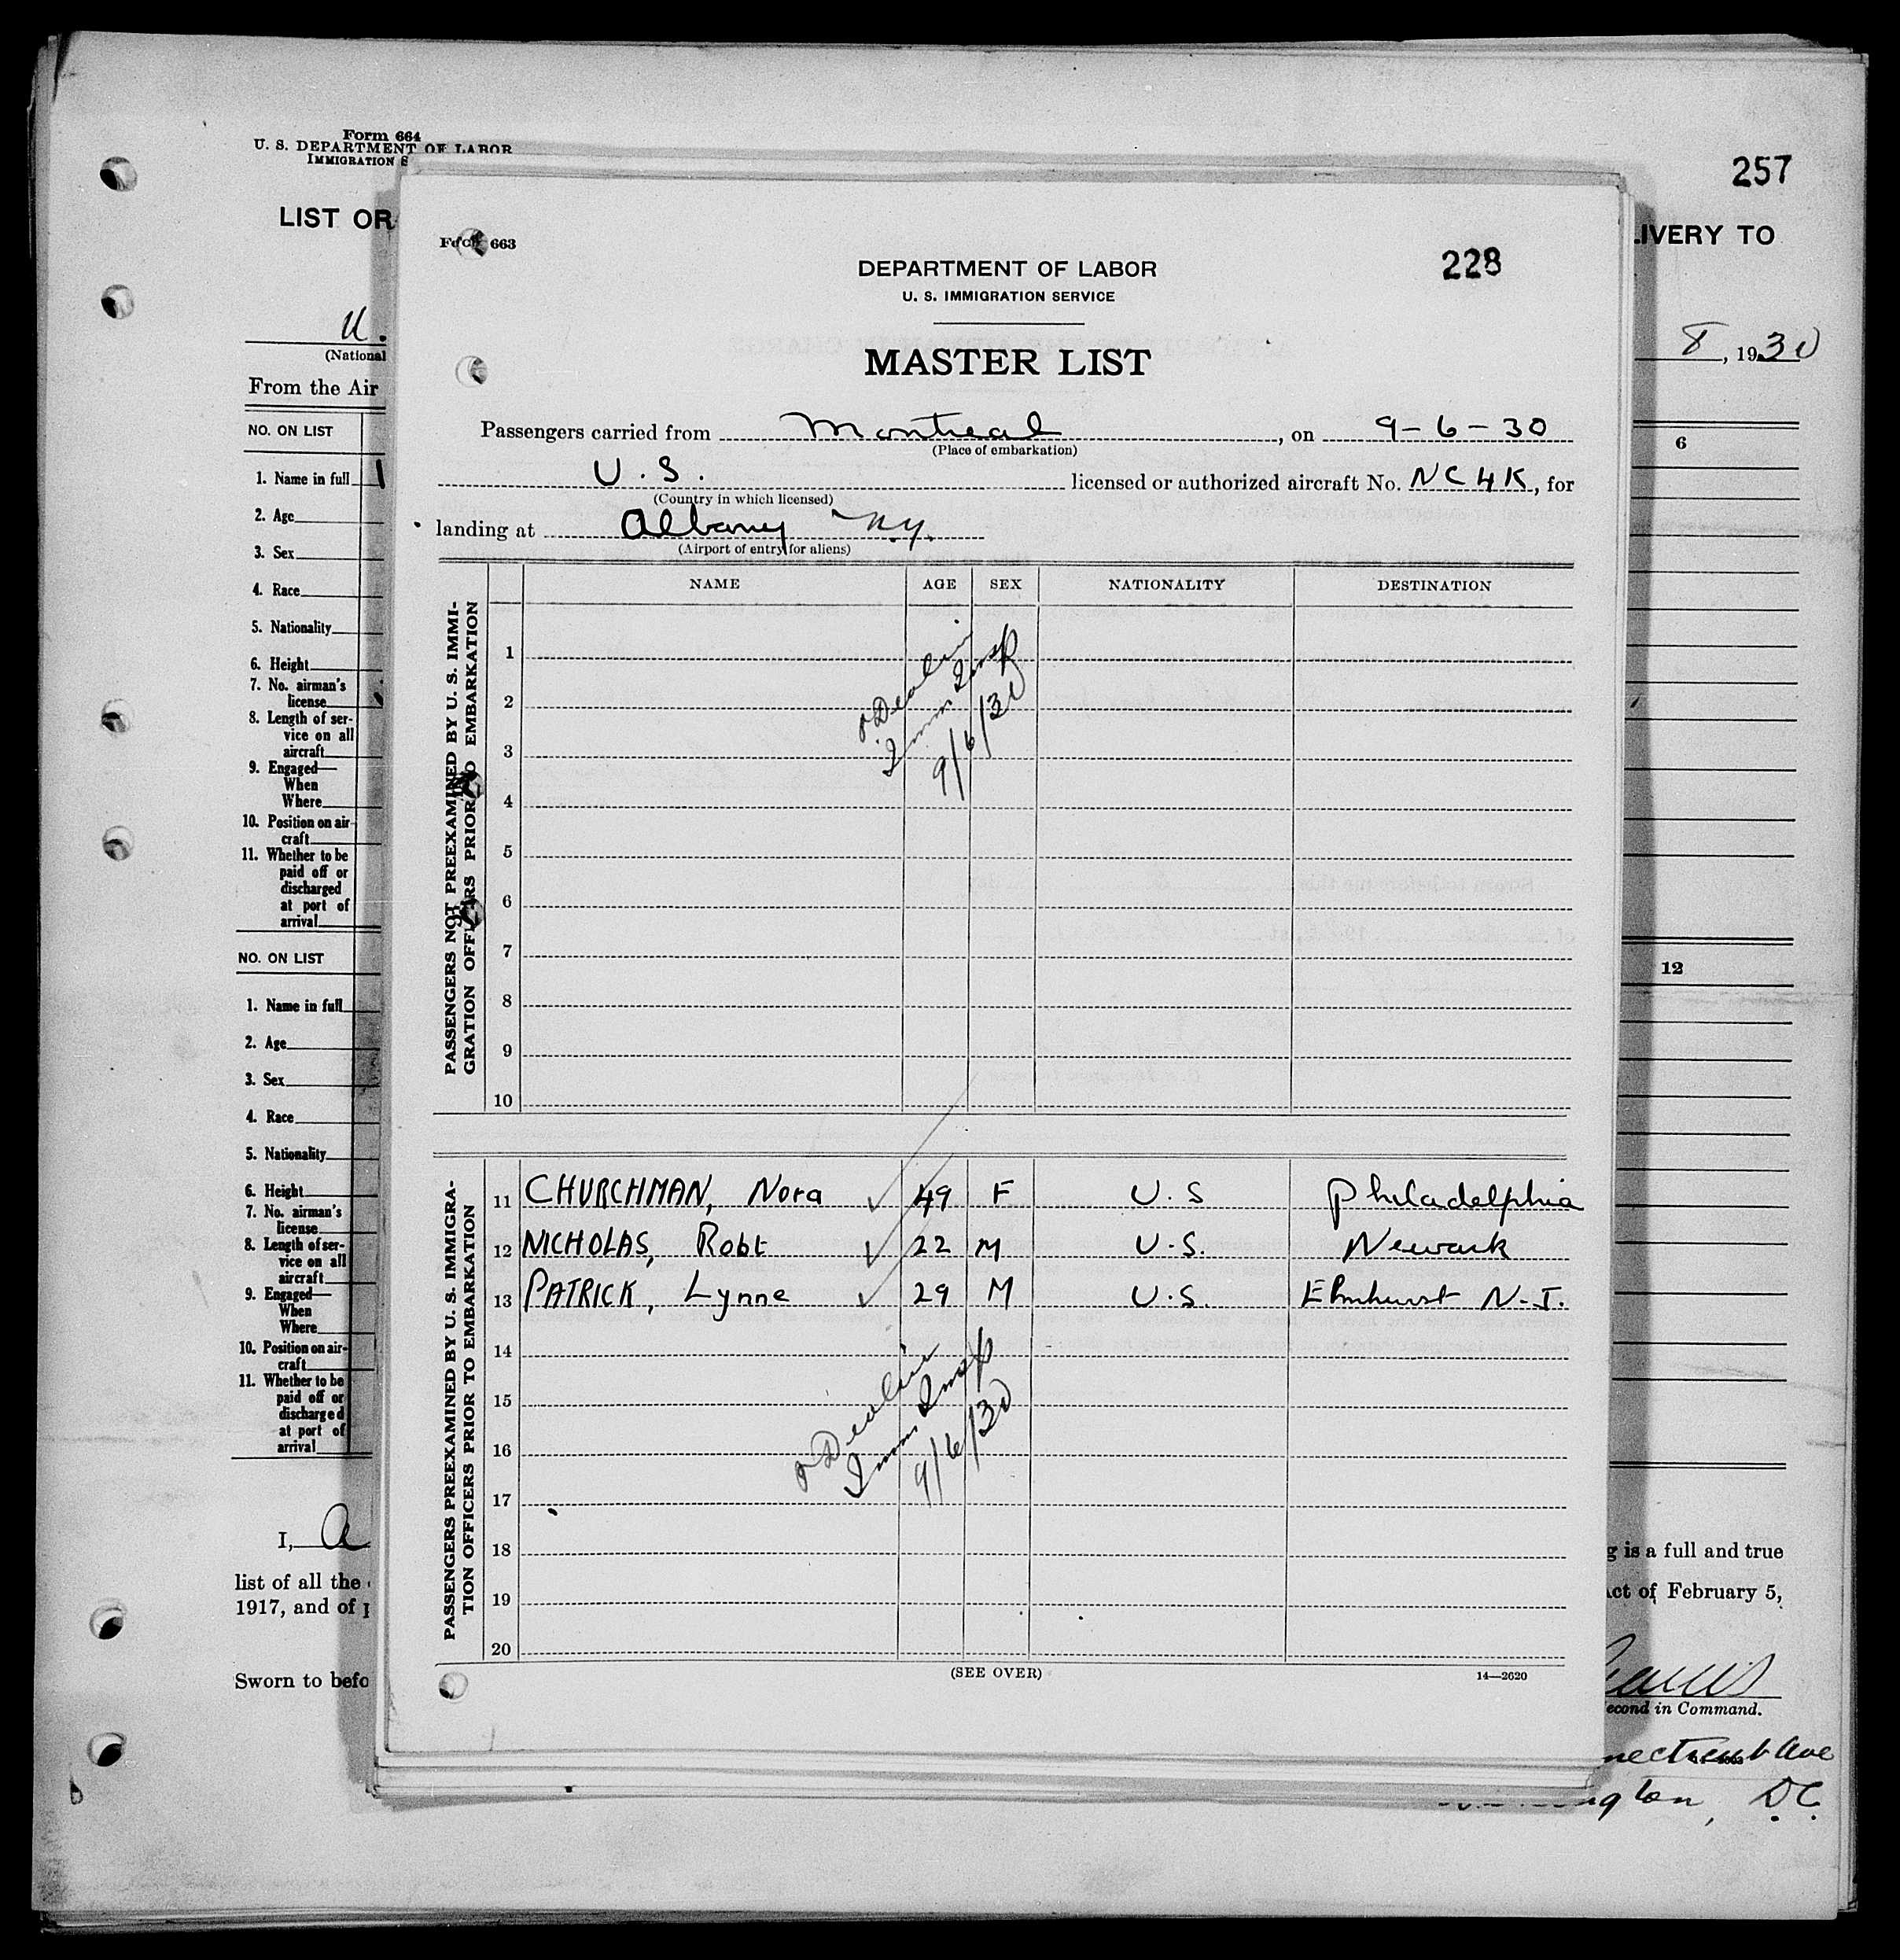 Form 664
U. S. DEPARTMENT OF LABOR
IMMIGRATION S
257
LIST OR
LIVERY TO
U.
(National
8, 1930
From the Air
NO. ON LIST
6
1. Name in full
2. Age
3. Sex
4. Race
5. Nationality
6. Height
7. No. airman's
license
8. Length of ser-
vice on all
aircraft
9. Engaged—
When
Where
10. Position on air-
craft
11. Whether to be
paid off or
discharged
at port of
arrival
NO. ON LIST
12
1. Name in full
2. Age
3. Sex
4. Race
5. Nationality
6. Height
7. No. airman's
license
8. Length of ser-
vice on all
aircraft
9. Engaged—
When
Where
10. Position on air-
craft
11. Whether to be
paid off or
discharged
at port of
arrival
I, A
g is a full and true
list of all the
Act of February 5,
1917, and of p
Sworn to befo
econd in Command.
necticut Ave
ngton, D.C.
663
228
DEPARTMENT OF LABOR
U. S. IMMIGRATION SERVICE
MASTER LIST
Passengers carried from Montreal, on 9-6-30
(Place of embarkation)
U.S. licensed or authorized aircraft No. NC4K, for
(Country in which licensed)
landing at Albany N.Y.
(Airport of entry for aliens)
NAME AGE SEX NATIONALITY DESTINATION
PASSENGERS NOT PREEXAMINED BY U. S. IMMI-
GRATION OFFICERS PRIOR TO EMBARKATION
1
2
3
4
5
6
7
8
9
10
Imm Insp
9/6/30
PASSENGERS PREEXAMINED BY U. S. IMMIGRA-
TION OFFICERS PRIOR TO EMBARKATION
11 CHURCHMAN, Nora 49 F U.S Philadelphia
12 NICHOLAS, Robt 22 M U.S. Newark
13 PATRICK, Lynne 29 M U.S. Elmhurst N-J.
14
15
16
17
18
19
20
Imm Insp
9/6/30
(SEE OVER)
14—2620